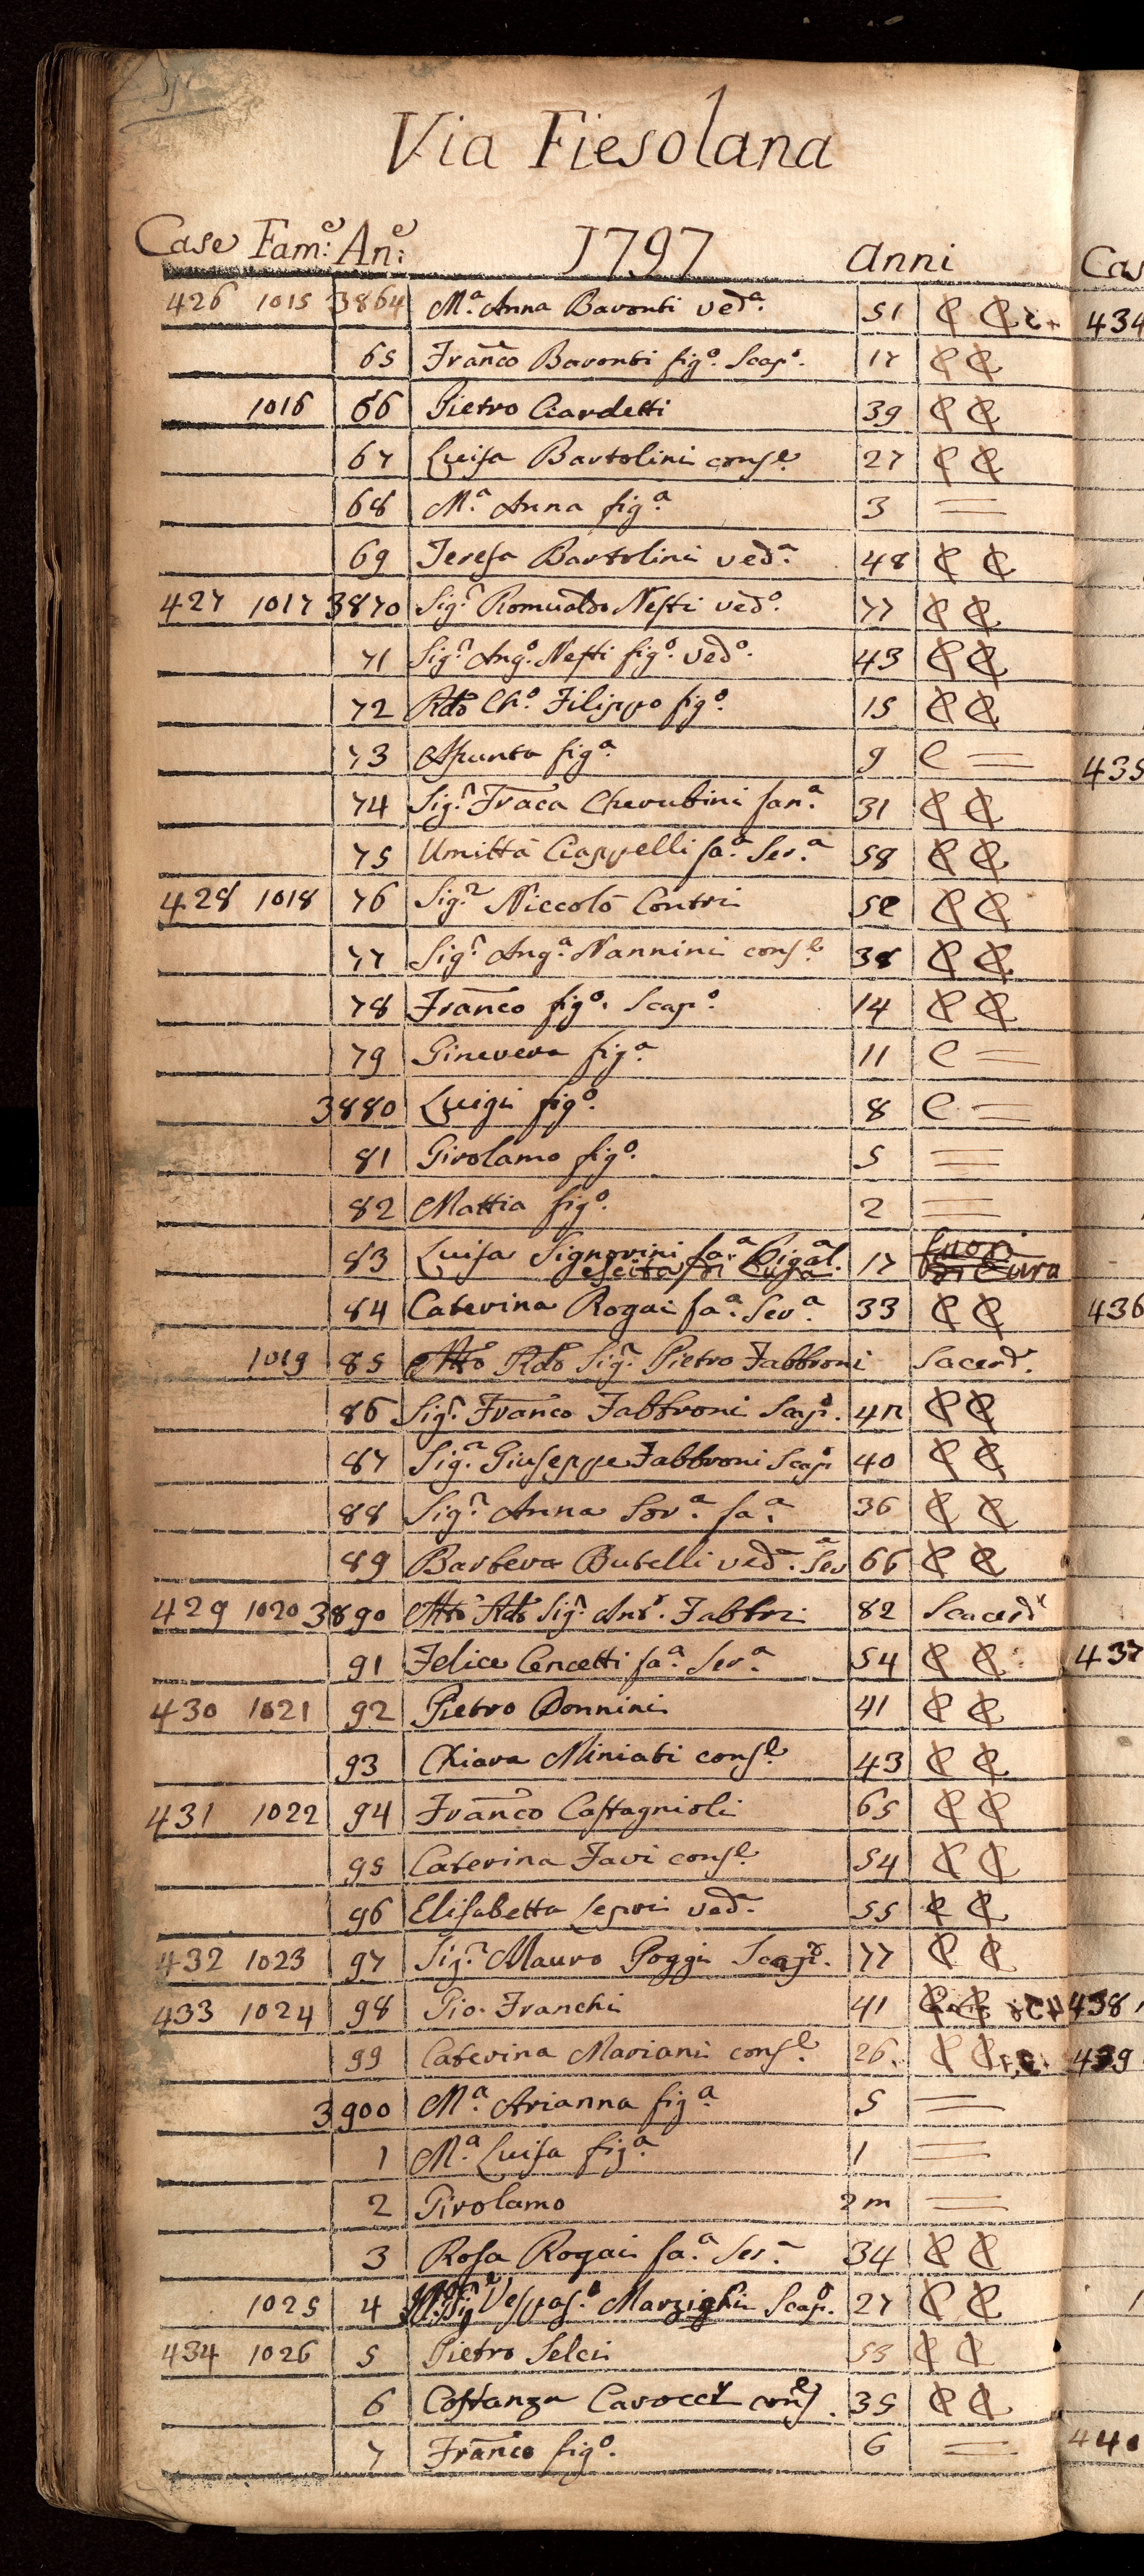 Via Fiesolana
Case Fam:e An:e 1797 Anni
426 1015 3864 M.a Anna Baronti ved.a 51 C C
65 Franco Baronti fig.o Scap.o 17 C C
1016 66 Pietro Ciardetti 39 C C
67 Luisa Bartolini cons.e 27 C C
68 M.a Anna fig.a 3 =
69 Teresa Bartolini ved.a 48 C C
427 1017 3870 Sig.r Romualdo Nesti ved.o 77 C C
71 Sig.r Ang.o Nesti fig.o ved.o 43 C C
72 Rdo Ch.o Filippo fig.o 15 C C
73 Assunta fig.a 9 C =
74 Sig.ra Fraca Cherubini fan.a 31 C C
75 Umiltà Ciappelli fa.a Ser.a 58 C C
428 1018 76 Sig.r Niccolò Contri 52 C C
77 Sig.ra Ang.a Nannini cons.e 38 C C
78 Franco fig.o Scap.o 14 C C
79 Ginevera fig.a 11 C =
3880 Luigi fig.o 8 C =
81 Girolamo fig.o 5 =
82 Mattia fig.o 2 =
83 Luisa Signorini fa.a Pig.al. 17 fuori
escita di Cura di Cura
84 Caterina Rogai fa.a Ser.a 33 C C
1019 85 Mto Rdo Sig.r Pietro Fabbroni Sacerd.
86 Sig.r Franco Fabbroni Scap.o C C
87 Sig.r Giuseppe Fabbroni Scap.o 40 C C
88 Sig.ra Anna Sor.a fa.a 36 C C
89 Barbera Butelli ved.a Ser.a 66 C C
429 1020 3890 Mto Rdo Sig.r Ant.o Fabbri 82 Scacerd.
91 Felice Cencetti fa.a Ser.a 54 C C
430 1021 92 Pietro Donnini 41 C C
93 Chiara Miniati cons.e 43 C C
431 1022 94 Franco Castagnioli 65 C C
95 Caterina Favi cons.e 54 C C
96 Elisabetta Sepri ved.a 55 C C
432 1023 97 Sig.r Mauro Poggi Scap.o 77 C C
433 1024 98 Gio. Franchi 41 C C
99 Caterina Mariani cons.e 26 C C
3900 M.a Arianna fig.a 5 =
1 M.a Luisa fig.a 1 =
2 Girolamo 2 m =
3 Rosa Rogai fa.a Ser.a 34 C C
1025 4 Sig.r Vespas.o Marzighi Scap.o 27 C C
434 1026 5 Pietro Selci 53 C C
6 Costanza Carocci cons.e 35 C C
7 Franco fig.o 6 =
Cas
434
435
436
437
438
439
440